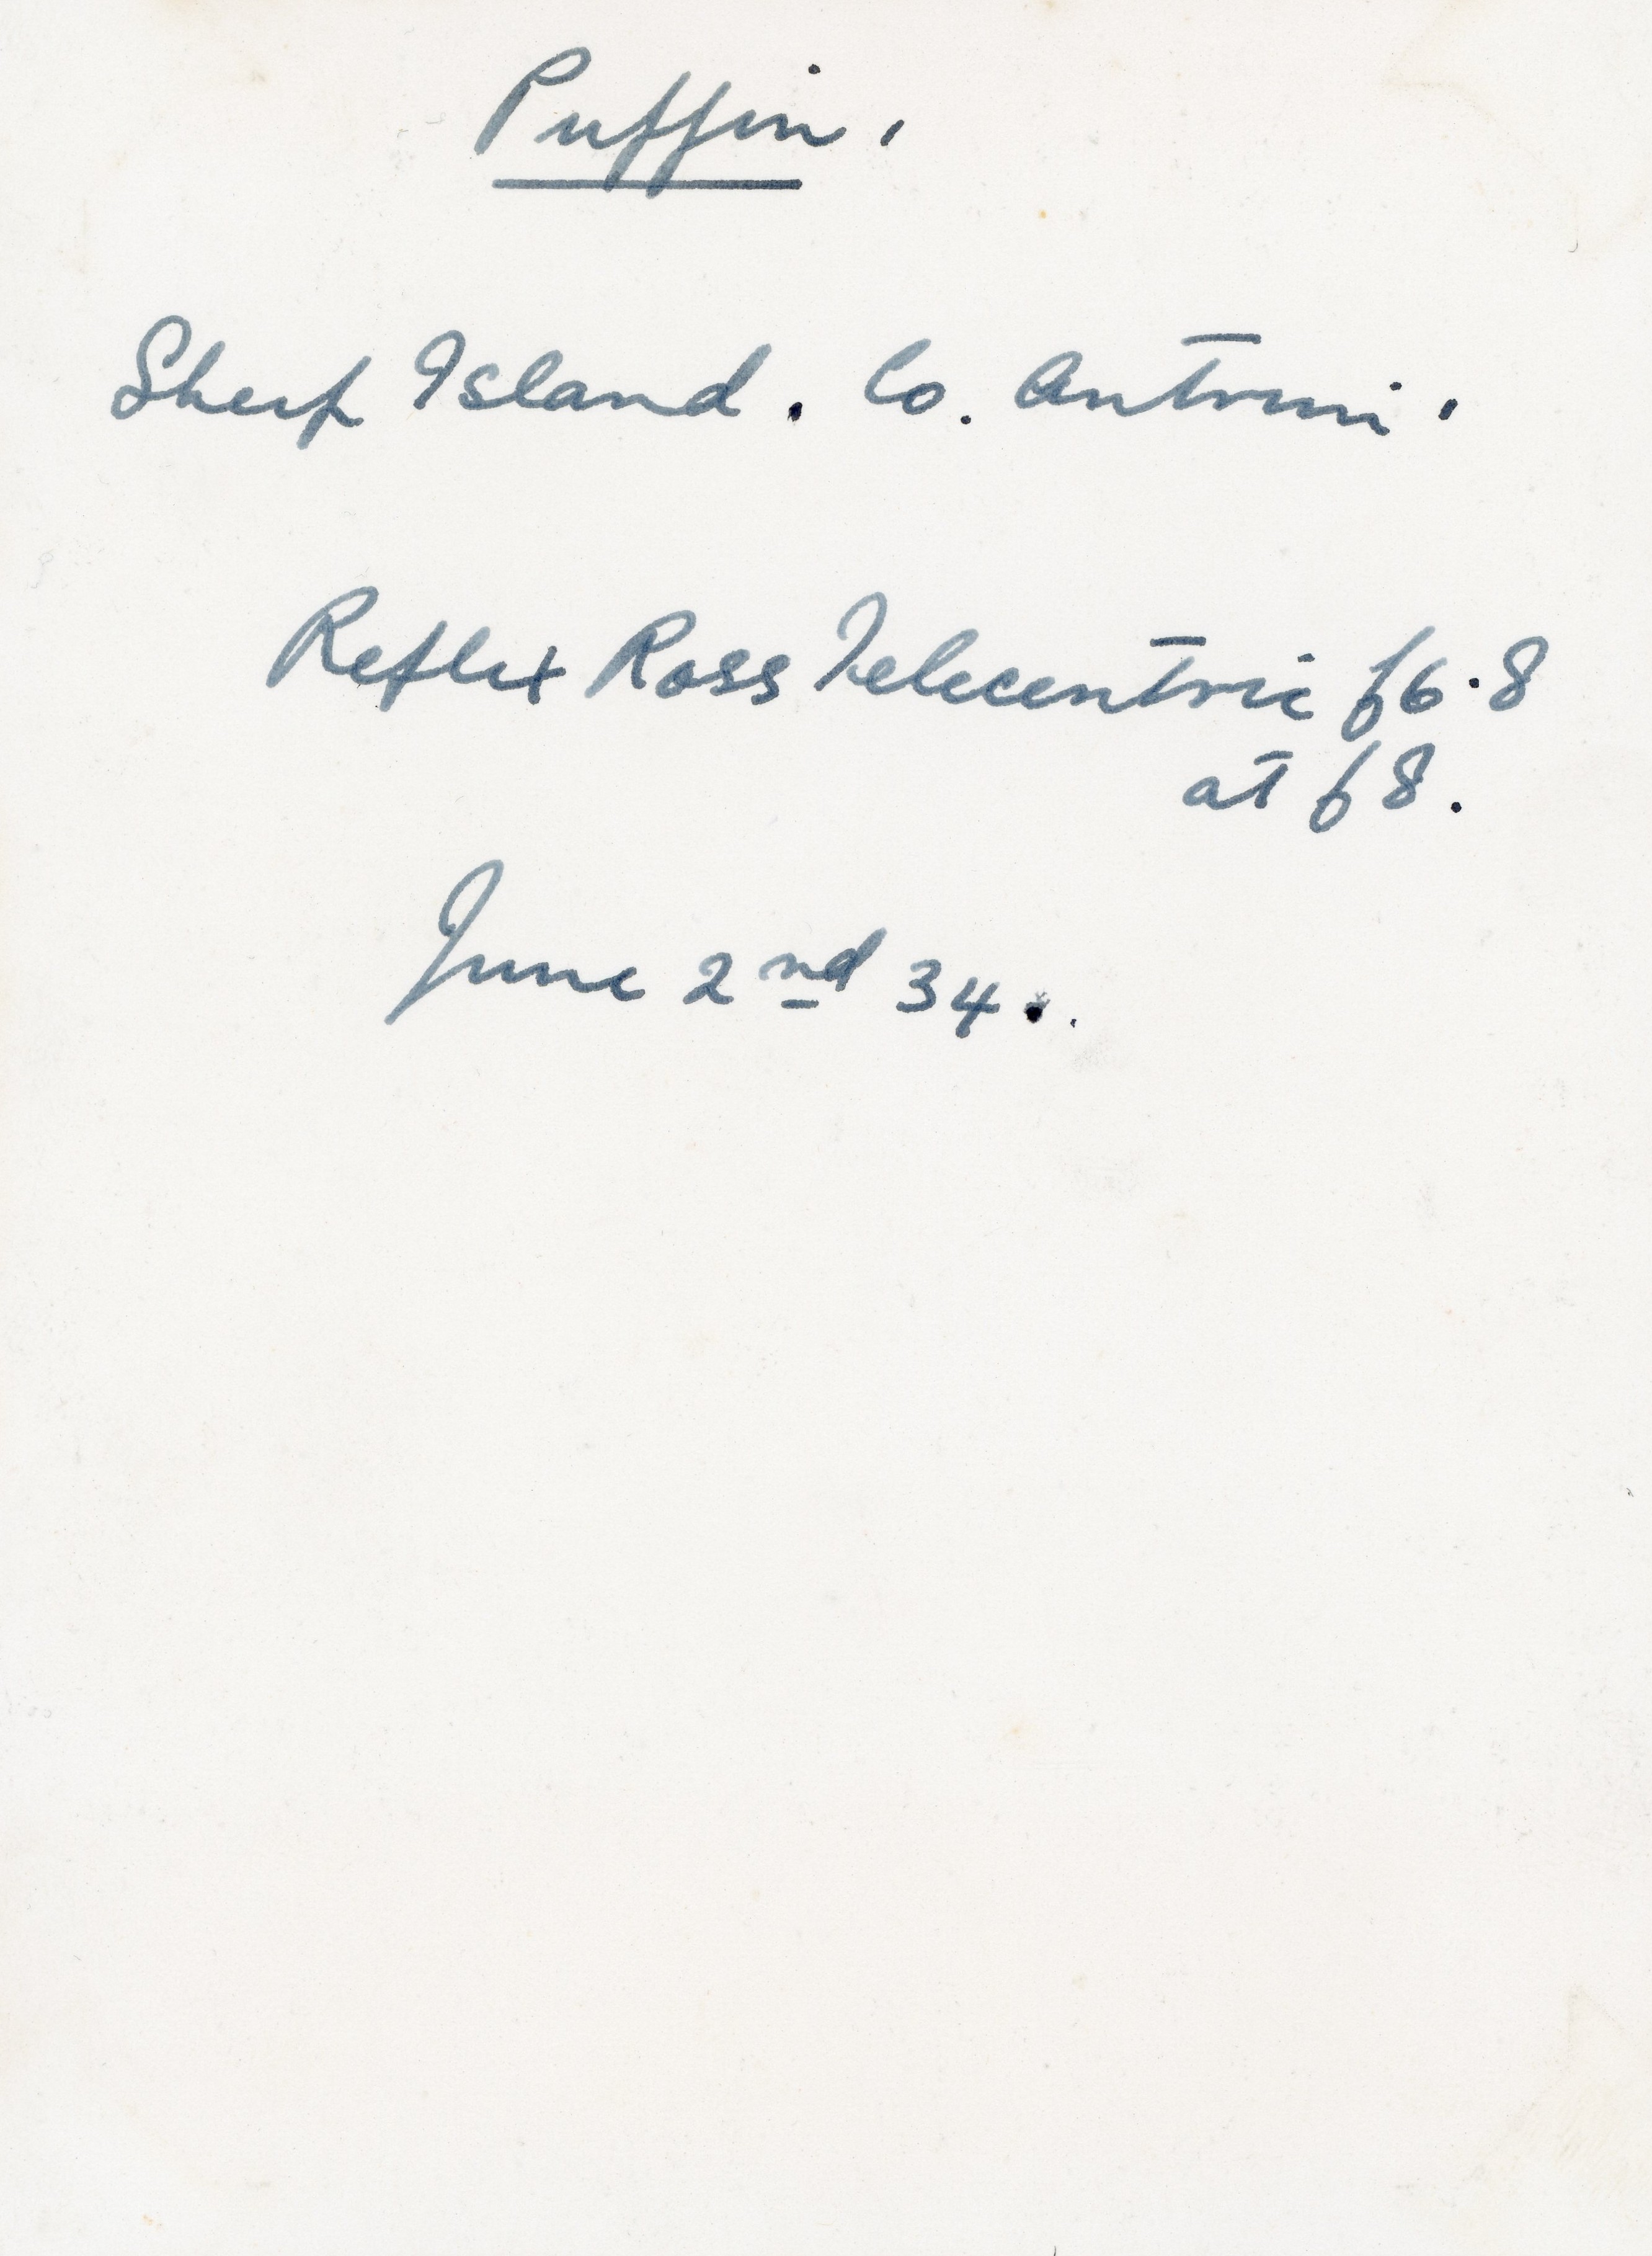 Puffin.
Sheep Island. Co. Antrim.
Reflex Ross Telecentric f6.8
at f8.
June 2nd 34.